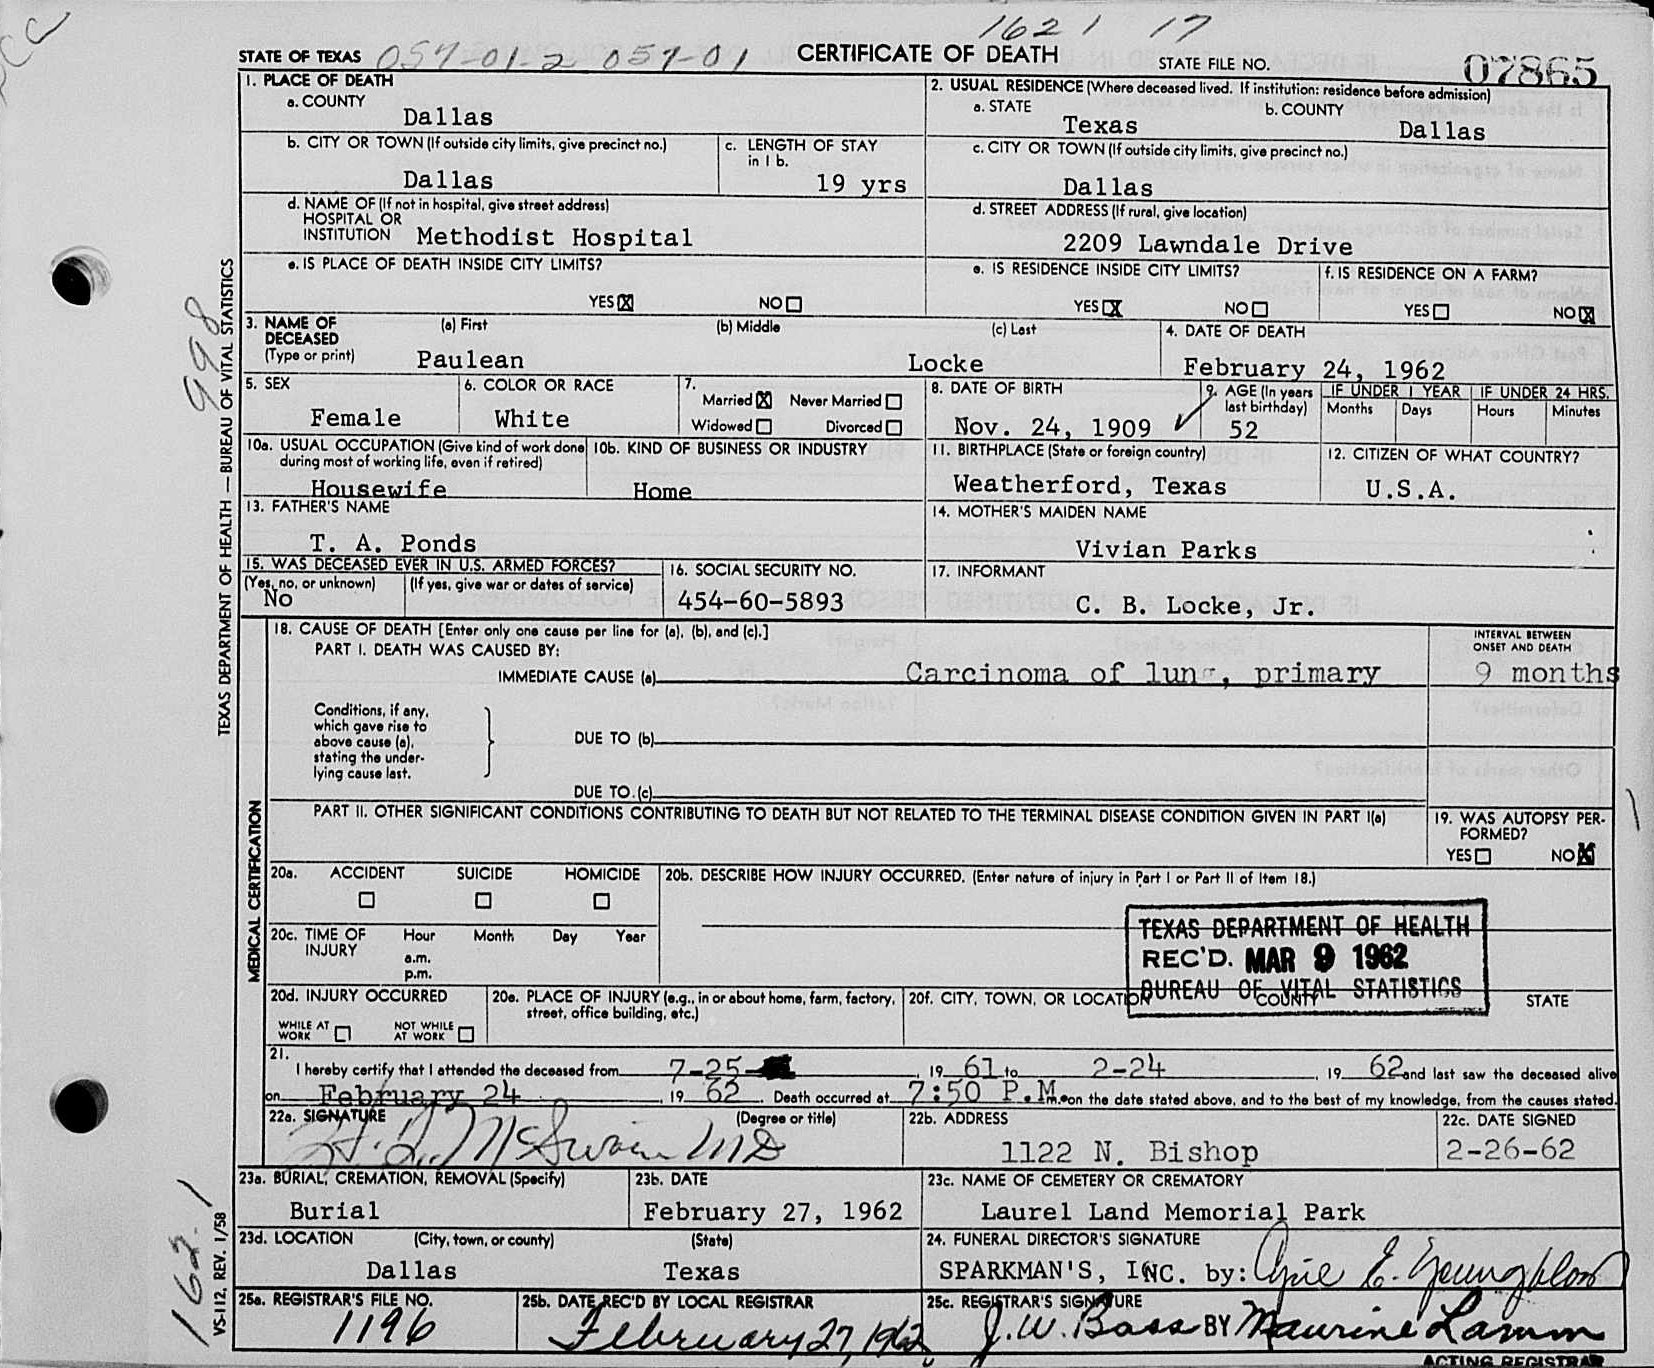 1621 17
STATE OF TEXAS 057-01-2 057-01 CERTIFICATE OF DEATH STATE FILE NO. 07865
1. PLACE OF DEATH
a. COUNTY
Dallas
2. USUAL RESIDENCE (Where deceased lived. If institution: residence before admission)
a. STATE b. COUNTY
Texas Dallas
b. CITY OR TOWN (If outside city limits, give precinct no.)
Dallas
c. LENGTH OF STAY
in 1 b.
19 yrs
c. CITY OR TOWN (If outside city limits, give precinct no.)
Dallas
d. NAME OF (If not in hospital, give street address)
HOSPITAL OR
INSTITUTION Methodist Hospital
d. STREET ADDRESS (If rural, give location)
2209 Lawndale Drive
e. IS PLACE OF DEATH INSIDE CITY LIMITS?
YES X NO
e. IS RESIDENCE INSIDE CITY LIMITS?
YES X NO
f. IS RESIDENCE ON A FARM?
YES NO X
3. NAME OF
DECEASED
(Type or print)
(a) First (b) Middle (c) Last
Paulean Locke
4. DATE OF DEATH
February 24, 1962
5. SEX
Female
6. COLOR OR RACE
White
7.
Married X Never Married
Widowed Divorced
8. DATE OF BIRTH
Nov. 24, 1909
9. AGE (In years
last birthday)
52
IF UNDER 1 YEAR IF UNDER 24 HRS.
Months Days Hours Minutes
10a. USUAL OCCUPATION (Give kind of work done
during most of working life, even if retired)
Housewife
10b. KIND OF BUSINESS OR INDUSTRY
Home
11. BIRTHPLACE (State or foreign country)
Weatherford, Texas
12. CITIZEN OF WHAT COUNTRY?
U.S.A.
13. FATHER'S NAME
T. A. Ponds
14. MOTHER'S MAIDEN NAME
Vivian Parks
15. WAS DECEASED EVER IN U.S. ARMED FORCES?
(Yes, no, or unknown) (If yes, give war or dates of service)
No
16. SOCIAL SECURITY NO.
454-60-5893
17. INFORMANT
C. B. Locke, Jr.
18. CAUSE OF DEATH [Enter only one cause per line for (a), (b), and (c).]
PART I. DEATH WAS CAUSED BY:
IMMEDIATE CAUSE (a) Carcinoma of lung, primary
INTERVAL BETWEEN
ONSET AND DEATH
9 months
Conditions, if any,
which gave rise to
above cause (a),
stating the under-
lying cause last.
DUE TO (b)
DUE TO (c)
PART II. OTHER SIGNIFICANT CONDITIONS CONTRIBUTING TO DEATH BUT NOT RELATED TO THE TERMINAL DISEASE CONDITION GIVEN IN PART I(a)
19. WAS AUTOPSY PER-
FORMED?
YES NO X
20a. ACCIDENT SUICIDE HOMICIDE
20b. DESCRIBE HOW INJURY OCCURRED. (Enter nature of injury in Part I or Part II of Item 18.)
20c. TIME OF
INJURY
Hour Month Day Year
a.m.
p.m.
TEXAS DEPARTMENT OF HEALTH
REC'D. MAR 9 1962
BUREAU OF VITAL STATISTICS
20d. INJURY OCCURRED
WHILE AT
WORK
NOT WHILE
AT WORK
20e. PLACE OF INJURY (e.g., in or about home, farm, factory,
street, office building, etc.)
20f. CITY, TOWN, OR LOCATION COUNTY STATE
21.
I hereby certify that I attended the deceased from 7-25- , 19 61 to 2-24 , 19 62 and last saw the deceased alive
on February 24 , 19 62 . Death occurred at 7:50 P.M. m. on the date stated above, and to the best of my knowledge, from the causes stated.
22a. SIGNATURE (Degree or title)
McSwain MD
22b. ADDRESS
1122 N. Bishop
22c. DATE SIGNED
2-26-62
23a. BURIAL, CREMATION, REMOVAL (Specify)
Burial
23b. DATE
February 27, 1962
23c. NAME OF CEMETERY OR CREMATORY
Laurel Land Memorial Park
23d. LOCATION (City, town, or county) (State)
Dallas Texas
24. FUNERAL DIRECTOR'S SIGNATURE
SPARKMAN'S, INC. by: E. Youngblood
25a. REGISTRAR'S FILE NO.
1196
25b. DATE REC'D BY LOCAL REGISTRAR
February 27, 1962
25c. REGISTRAR'S SIGNATURE
J. W. Bass BY Maurine Lamm
ACTING REGISTRAR
TEXAS DEPARTMENT OF HEALTH — BUREAU OF VITAL STATISTICS
998
MEDICAL CERTIFICATION
VS-112, REV. 1/58
162.1